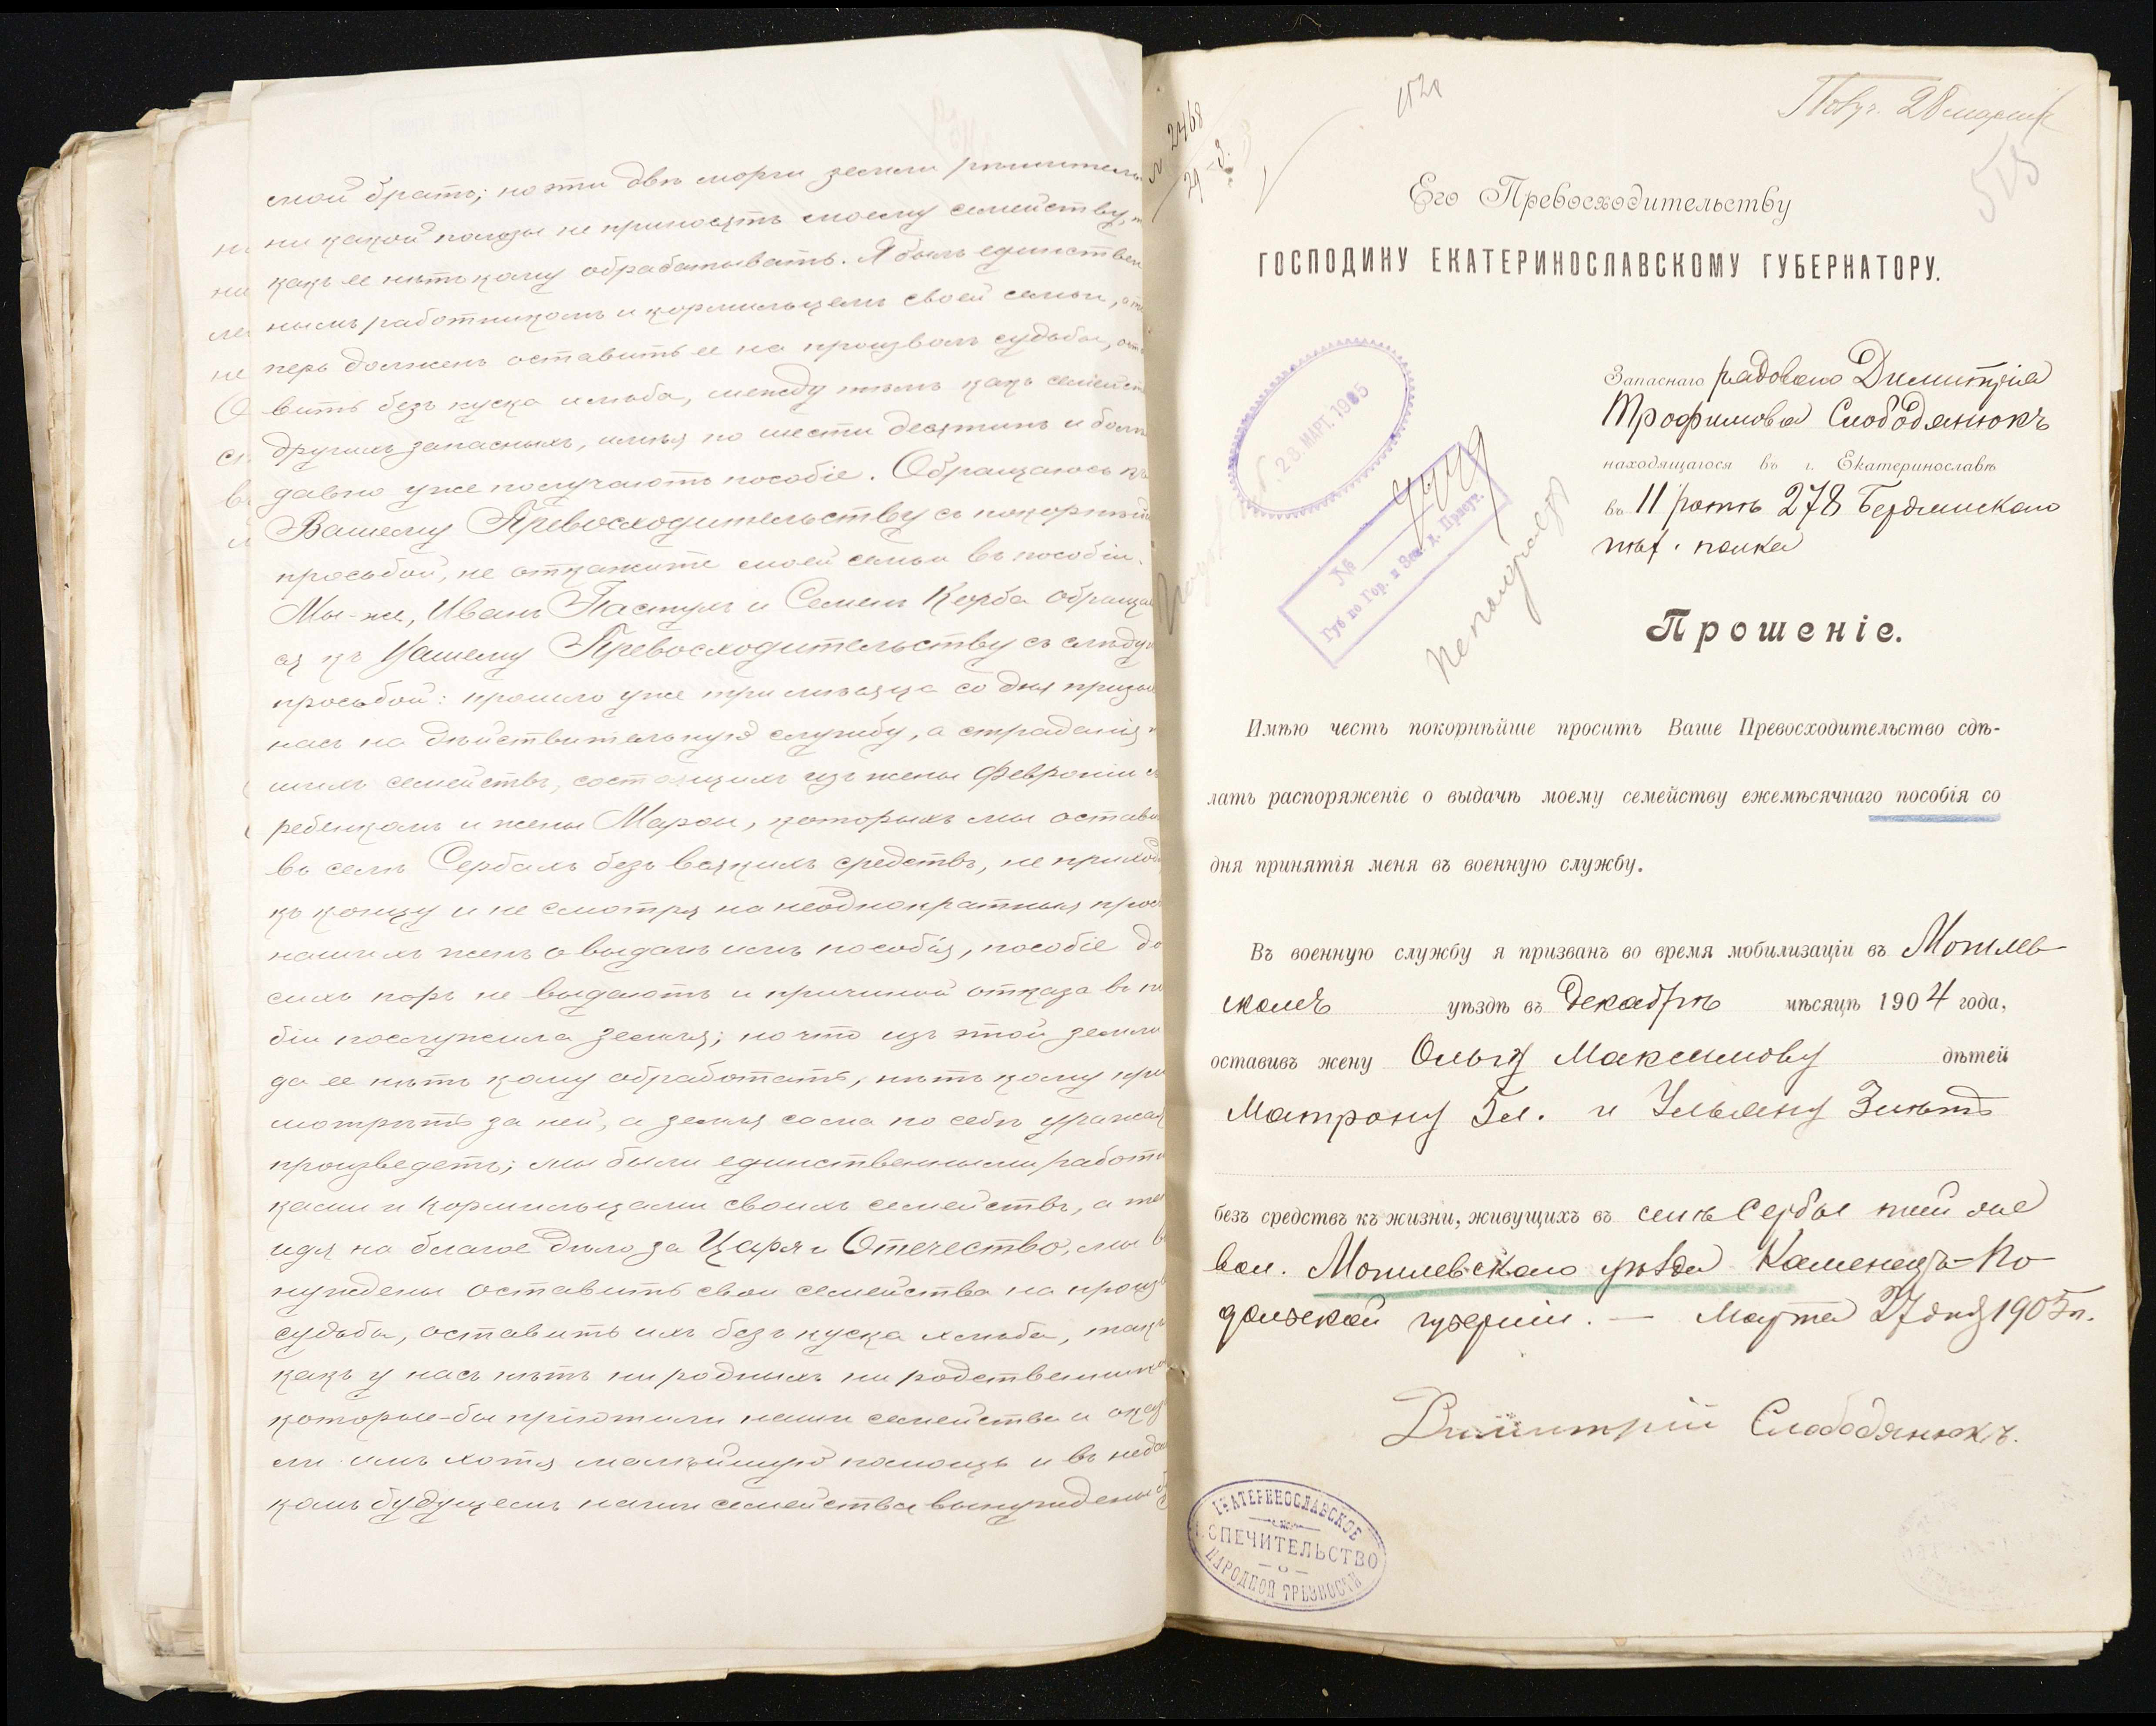 мой братъ; но эти двѣ морги земли рѣшительн
ни какой пользы не приносятъ моему семейству, т
какъ ее нѣтъ кому обрабатывать. Я былъ единствен
нымъ работникомъ и кормильцемъ своей семьи, а те
перь долженъ оставить ее на произволъ судьбы, оста
вить безъ куска хлѣба, между тѣмъ какъ семейст
другихъ запасныхъ, имѣя по шести десятинъ и болѣе
давно уже получаютъ пособіе. Обращаюсь къ
Вашему Превосходительству съ покорнѣй
просьбой, не откажите моей семьи въ пособіи.
Мы-же, Иванъ Пастухъ и Семенъ Корба обраща
ся къ Вашему Превосходительству съ слѣду
просьбой: прошло уже три мѣсяца со дня призы
насъ на дѣйствительную службу, а страданія н
шихъ семействъ, состоящихъ изъ жены Февроніи съ
ребенкомъ и жены Марѳы, которыхъ мы остави
въ селѣ Сербахъ безъ всякихъ средствъ, не приход
къ концу и не смотря на неоднократныя прось
нашихъ женъ о выдачѣ имъ пособія, пособіе до
сихъ поръ не выдаютъ и причиной отказа въ по
біи послужила земля; но что изъ этой земли
да ее нѣтъ кому обработать, нѣтъ кому при
мотрѣть за ней, а земля сама по себѣ урожая
произведетъ; мы были единственными работни
ками и кормильцами своихъ семействъ, а те
идя на благое дѣло за Царя и Отечество, мы в
нуждены оставить свои семейства на произв
судьбы, оставить ихъ безъ куска хлѣба, такъ
какъ у насъ нѣтъ ни родныхъ ни родственнико
которые-бы пріютили наши семейства и оказ
ли имъ хотя малѣйшую помощь и въ недал
комъ будущемъ наши семейства вынуждены б
№ 2468
29-3
1528
28 марта
515
Его Превосходительству
ГОСПОДИНУ ЕКАТЕРИНОСЛАВСКОМУ ГУБЕРНАТОРУ.
28 МАРТ. 1905
№
Губ по Гор. и Зем. д. Присут.
Запаснаго рядоваго Димитрія
Трофимова Слободянюкъ
находящагося въ г. Екатеринославѣ
въ 11 ротѣ 278 Бердянскаго
пѣх. полка
Прошеніе.
Имѣю честь покорнѣйше просить Ваше Превосходительство сдѣ-
лать распоряженіе о выдачѣ моему семейству ежемѣсячнаго пособія со
дня принятія меня въ военную службу.
Въ военную службу я призванъ во время мобилизаціи въ Могилев
скомъ уѣздѣ въ Декабрѣ мѣсяцѣ 1904 года,
оставивъ жену Ольгу Максимову дѣтей
Матрону 5л. и Ульяну 3 лѣтъ
безъ средствъ къ жизни, живущихъ въ селѣ Сербы той же
вол. Могилевскаго уѣзда Каменецъ-По
дольской губерніи. — Марта 27 дня 1905 г.
Димитрій Слободянюкъ.
ЕКАТЕРИНОСЛАВСКОЕ
ПОПЕЧИТЕЛЬСТВО
о
НАРОДНОЙ ТРЕЗВОСТИ